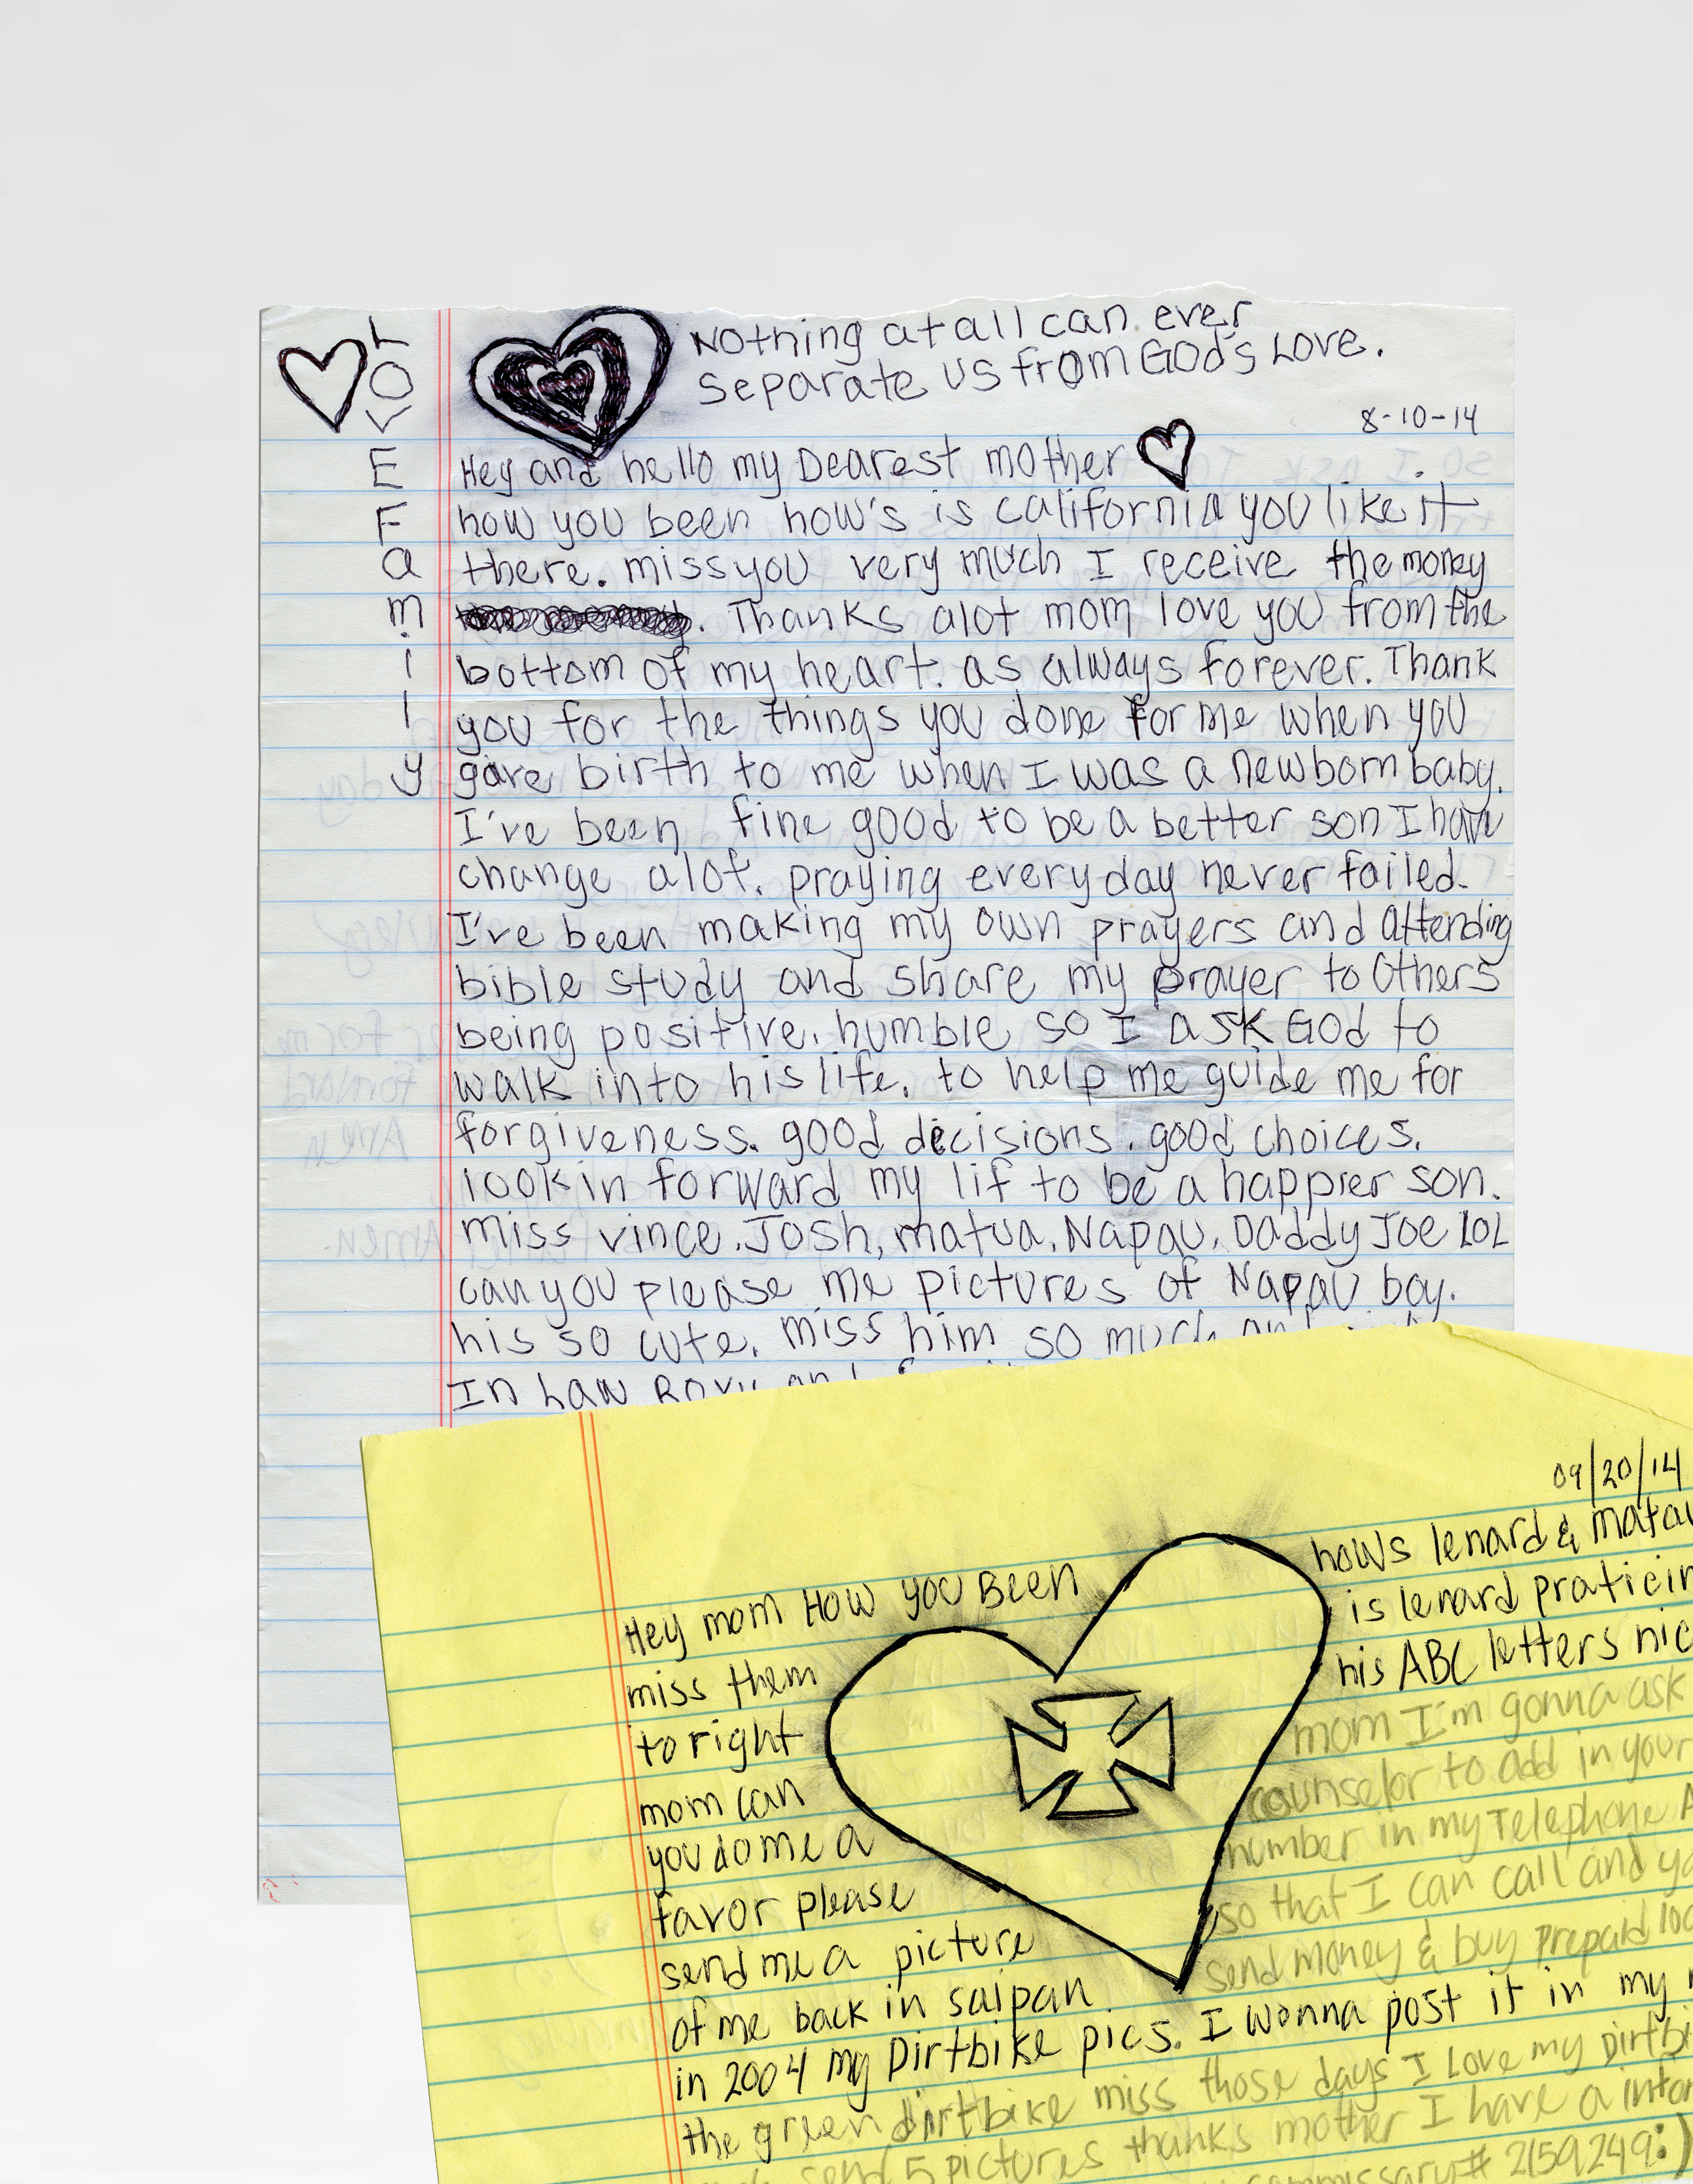 LOVE Family
Nothing at all can ever
separate us from God's Love.
8-10-14
Hey and hello my Dearest mother
how you been how's is california you like it
there. miss you very much I receive the money
. Thanks alot mom love you from the
bottom of my heart. as always forever. Thank
you for the things you done for me when you
gave birth to me when I was a newborn baby.
I've been fine good to be a better son I have
change alot. praying everyday never failed.
I've been making my own prayers and attending
bible study and share my prayer to others
being positive. humble so I ask God to
walk into his life. to help me guide me for
forgiveness. good decisions. good choices.
look in forward my lif to be a happier son.
miss vince. Josh, matua. Napau. Daddy Joe LOL
can you please me pictures of Napau boy.
his so cute. miss him so much and
In Law
09/20/14
Hey mom How you Been
miss them
to right
mom can
you do me a
favor please
send me a picture
of me back in saipan.
in 2004 my Dirtbike pics. I wonna post it in my
the green dirtbike miss those days I Love my Dirtbi
send 5 pictures thanks mother I have a infor
commissary # 2159249:)
hows lenard & matau
is lenard praticin
his ABC letters nic
mom I'm gonna ask
counselor to add in your
number in my Telephone A
so that I can call and yo
send money & buy prepaid loc